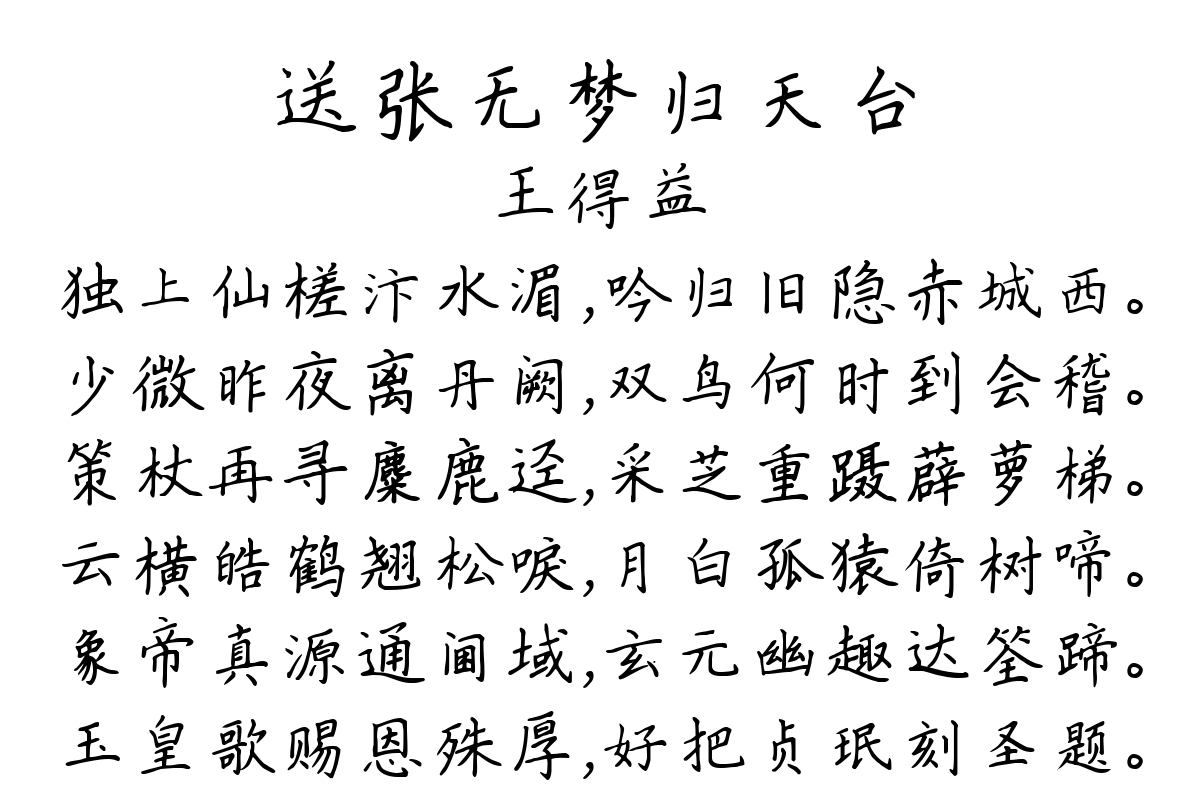 送张无梦归天台
王得益
独上仙槎汴水湄,吟归旧隐赤城西。
少微昨夜离丹阙,双鸟何时到会稽。
策杖再寻麋鹿迳,采芝重蹑薜萝梯。
云横皓鹤翘松唳,月白孤猿倚树啼。
象帝真源通阃域,玄元幽趣达筌蹄。
玉皇歌赐恩殊厚,好把贞珉刻圣题。